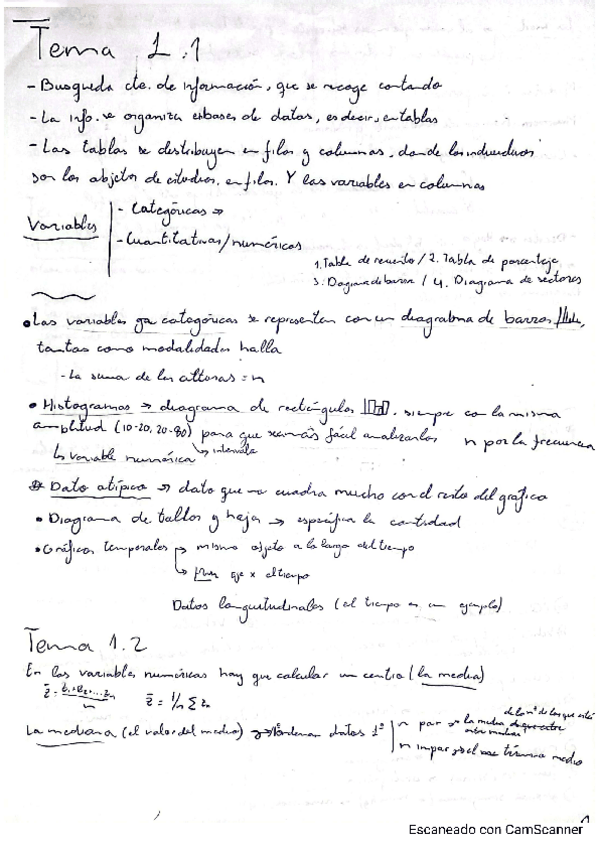 Tema 1.1
- Busqueda cte. de información, que se recoge contando
- La info. se organiza en bases de datos, es decir, en tablas
- Las tablas se destribuyen en filas y columnas, donde los individuos
son los objetos de estudios, en filas. Y las variables en columnas
Variables
- Categóricas →
- Cuantitativas/numéricas
1. Tabla de recuento / 2. Tabla de porcentaje
3. Diagrama de barra / 4. Diagrama de sectores
• Las variables categóricas se representan con un diagrama de barras,
tantas como modalidades halla
- La suma de las alturas = n
• Histogramas → diagrama de rectángulos. siempre con la misma
amplitud (10-20, 20-80) para que sea más fácil analizarlos n por la frecuencia
↳ variable numérica ↘ intervalo
Dato atípico → dato que no cuadra mucho con el resto del gráfico
• Diagrama de tallos y hoja → especifica la cantidad
• Gráficos temporales → mismo objeto a lo largo del tiempo
↳ eje x el tiempo
Datos longitudinales (el tiempo es un ejemplo)
Tema 1.2
En las variables numéricas hay que calcular un centro (la media)
z̄ = 1/n Σ
La mediana (el valor del medio) → ordenar datos 1º
n par → la media
n impar → el término medio
Escaneado con CamScanner